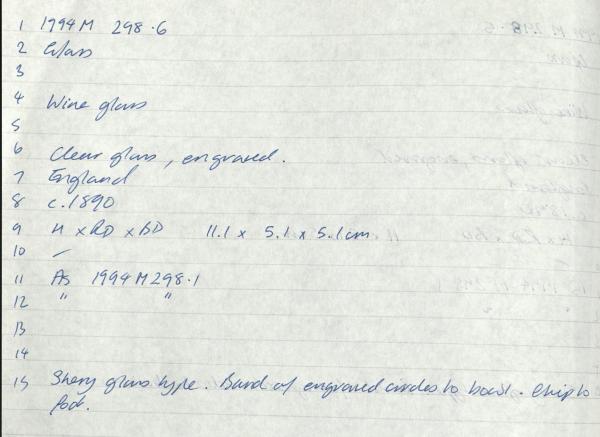 1 1994 M 298.6
2 Glass
3
4 Wine glass
5
6 Clear glass, engraved.
7 England
8 c.1890
9 H x RD x BD 11.1 x 5.1 x 5.1cm
10 -
11 As 1994 M 298.1
12 " "
13
14
15 Sherry glass type. Band of engraved circles to bowl. Chip to
foot.